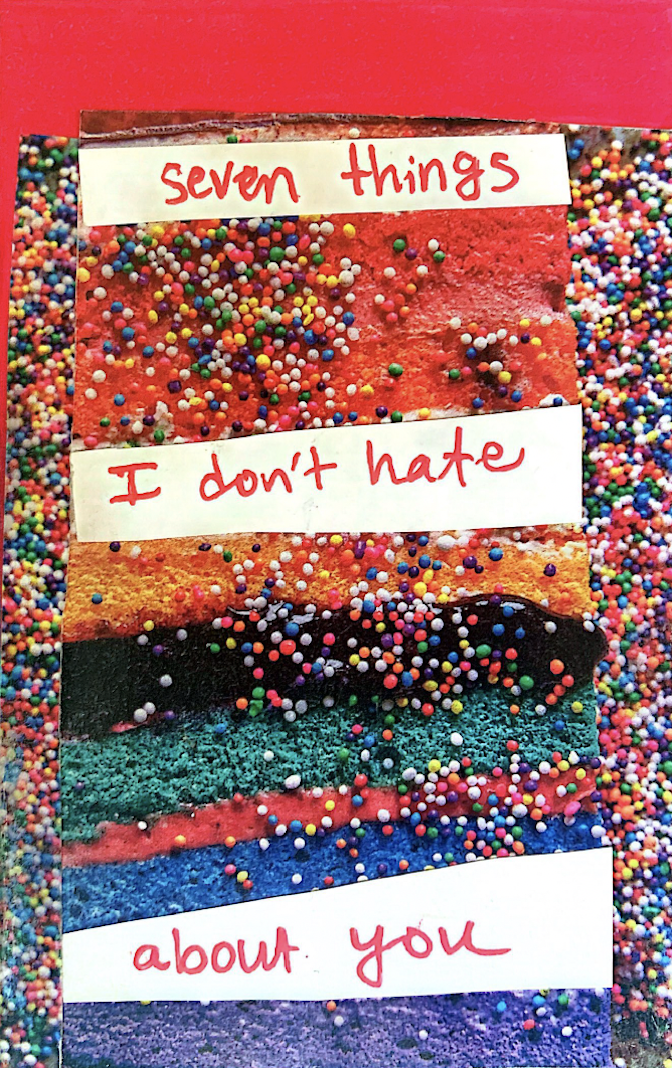 seven things
I don't hate
about you